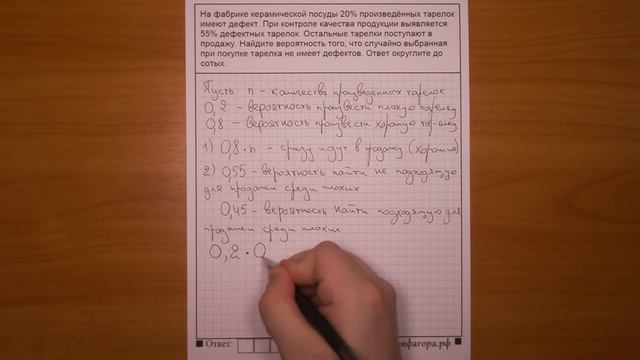 На фабрике керамической посуды 20% произведённых тарелок
имеют дефект. При контроле качества продукции выявляется
55% дефектных тарелок. Остальные тарелки поступают в
продажу. Найдите вероятность того, что случайно выбранная
при покупке тарелка не имеет дефектов. Ответ округлите до
сотых.
Пусть n - количества произведённых тарелок
0,2 - вероятность произвести плохую тарелку
0,8 - вероятность произвести хорошую тарелку
1) 0,8·n - сразу идут в продажу (хорошие)
2) 0,55 - вероятность найти не подходящую
для продажи среди плохих
0,45 - вероятность найти подходящую для
продажи среди плохих
0,2·0
Ответ:
ифагора.рф